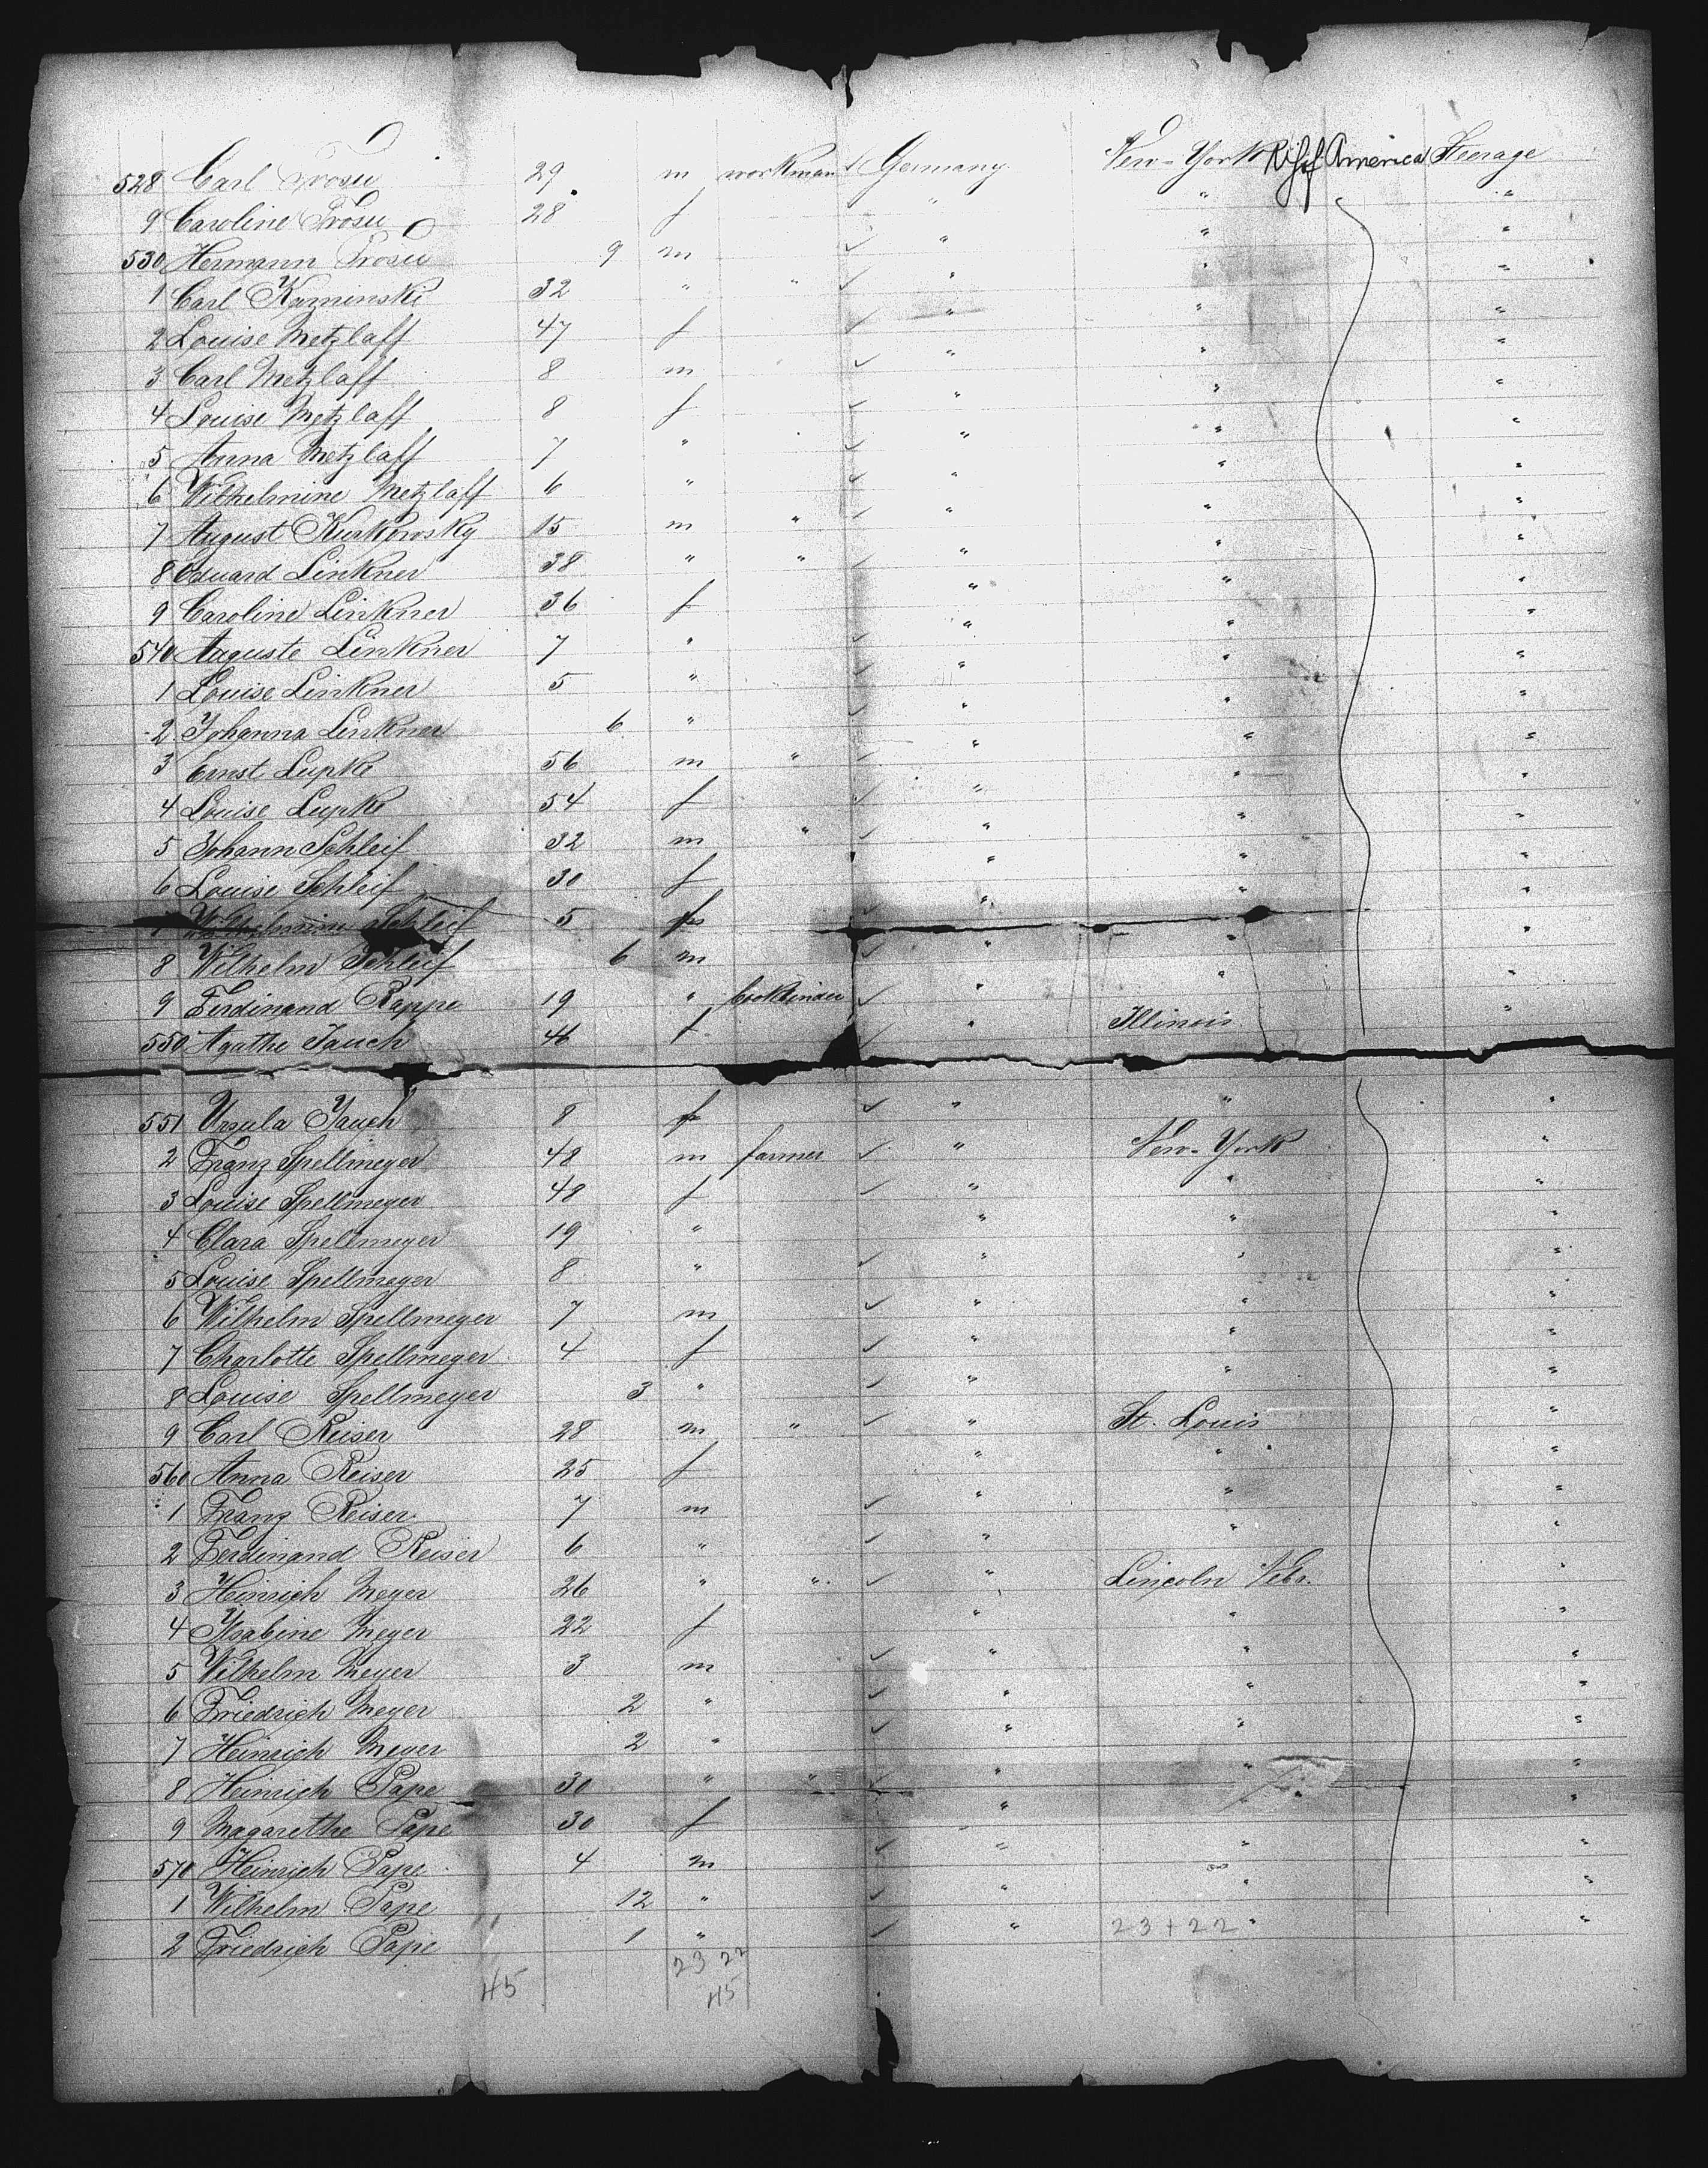 528 Carl Trosu 29 m workman Germany New-York America Steerage
9 Caroline Trosu 28 f " " "
530 Hermann Trosu 9 m " " "
1 Carl Kaminski 32 " " " " "
2 Louise Metzlaff 47 f " " "
3 Carl Metzlaff 8 m " " "
4 Louise Metzlaff 8 f " " "
5 Anna Metzlaff 7 " " " "
6 Wilhelmine Metzlaff 6 " " " "
7 August Kurkowsky 15 m " " " "
8 Eduard Linkner 38 " " " " "
9 Caroline Linkner 36 f " " "
540 Auguste Linkner 7 " " " "
1 Louise Linkner 5 " " " "
2 Johanna Linkner 6 " " " "
3 Ernst Lupke 56 m " " " "
4 Louise Lupke 54 f " " "
5 Johann Schleif 32 m " " " "
6 Louise Schleif 30 f " " "
7 Wilhelmine Schleif 5 f " " "
8 Wilhelm Schleif 6 m " " "
9 Ferdinand Rappe 19 " bookbinder " " "
550 Agathe Jauch 46 f " Illinois "
551 Ursula Jauch 8 f " " "
2 Franz Spellmeyer 48 m farmer " New-York "
3 Louise Spellmeyer 48 f " " "
4 Clara Spellmeyer 19 " " " "
5 Louise Spellmeyer 8 " " " "
6 Wilhelm Spellmeyer 7 m " " "
7 Charlotte Spellmeyer 4 f " " "
8 Louise Spellmeyer 3 " " " "
9 Carl Reiser 28 m " " St. Louis "
560 Anna Reiser 25 f " " "
1 Franz Reiser 7 m " " "
2 Ferdinand Reiser 6 " " " "
3 Heinrich Meyer 26 " " " Lincoln Nebr. "
4 Ysabine Meyer 22 f " " "
5 Wilhelm Meyer 3 m " " "
6 Friedrich Meyer 2 " " " "
7 Heinrich Meyer 2 " " " "
8 Heinrich Pape 30 " " " " "
9 Magarethe Pape 30 f " " "
570 Heinrich Pape 4 m " " "
1 Wilhelm Pape 12 " " " "
2 Friedrich Pape 1 " " " "
23 + 22
23 22
45 45